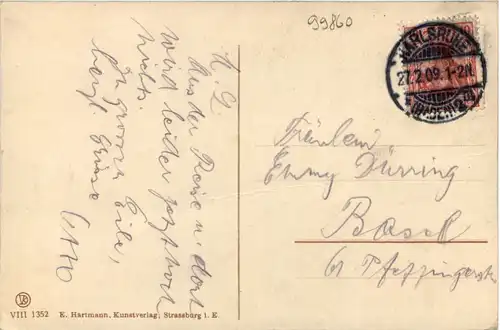 99860
L. E.
Aus der Reise n. dort
wird leider jetzt noch
nichts.
In grosser Eile,
herzl. Grüsse
Otto
KARLSRUHE
27.2.09. 1-2N.
(BADEN) 2
Fräulein
Emmy Dürring
Basel
61 Pfeffingerstr.
VIII 1352 E. Hartmann, Kunstverlag, Strassburg i. E.